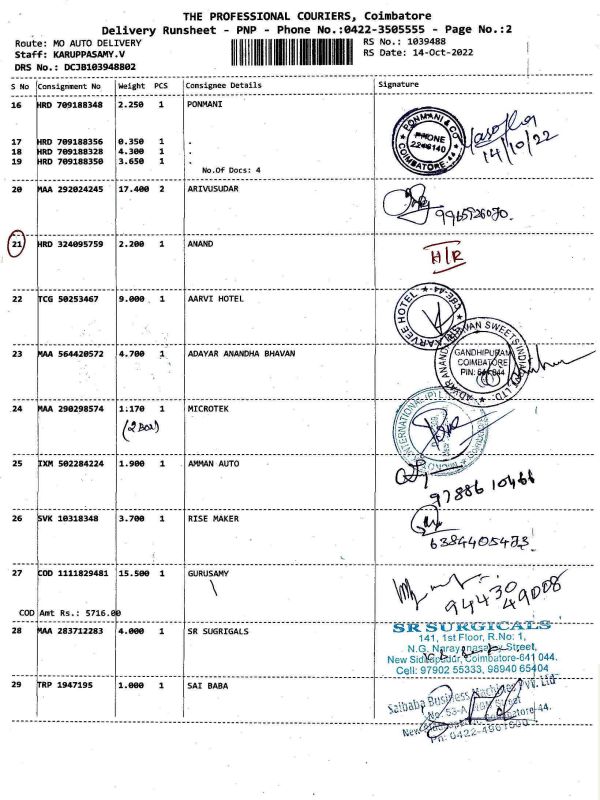 THE PROFESSIONAL COURIERS, Coimbatore
Delivery Runsheet - PNP - Phone No.:0422-3505555 - Page No.:2
Route: MO AUTO DELIVERY
RS No.: 1039488
Staff: KARUPPASAMY.V
RS Date: 14-Oct-2022
DRS No.: DCJB103948802
S No Consignment No Weight PCS Consignee Details Signature
16 HRD 709188348 2.250 1 PONMANI
PONMANI & CO
PHONE
COIMBATORE-44
14/10/22
17 HRD 709188356 0.350 1 .
18 HRD 709188328 4.300 1 .
19 HRD 709188350 3.650 1 .
No.Of Docs: 4
20 MAA 292024245 17.400 2 ARIVUSUDAR
21 HRD 324095759 2.200 1 ANAND
H/R
22 TCG 50253467 9.000 1 AARVI HOTEL
AARVEE HOTEL CBE-44
23 MAA 564420572 4.700 1 ADAYAR ANANDHA BHAVAN
GANDHIPURAM
COIMBATORE
PIN: 641 044
24 MAA 290298574 1.170 1 MICROTEK
(2 Box)
25 IXM 502284224 1.900 1 AMMAN AUTO
97886 10466
26 SVK 10318348 3.700 1 RISE MAKER
6384405473.
27 COD 1111829481 15.500 1 GURUSAMY
94430
49008
COD Amt Rs.: 5716.00
28 MAA 283712283 4.000 1 SR SUGRIGALS
SR SURGICALS
141, 1st Floor, R.No: 1,
N.G. Narayanasamy Street,
New Siddapudur, Coimbatore-641 044.
Cell: 97902 55333, 98940 65404
29 TRP 1947195 1.000 1 SAI BABA
Saibaba Business Machines Pvt. Ltd
No: 53-A, Street
Coimbatore-44.